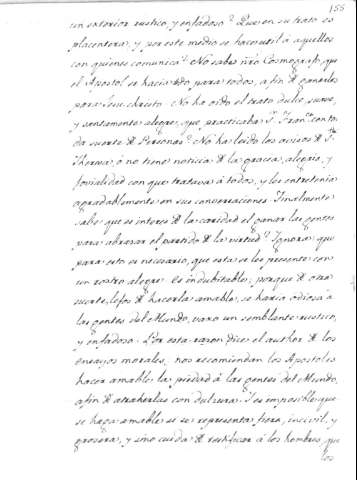 155
un satorios rustico, y enfadoso? Que en su trato es
placentera, y por este medio se hace util á aquellos
con quienes comunica? No sabe nro Cosmografo, que
el Apostol se hacia todo para todos, a fin de ganarlos
para Jesu-christo. No ha oido el trato dulce, suave,
y santamente alegre, que practicaba Sn. Franco. con to-
da suerte de Personas? No ha leido los avisos de Sta.
Theresa, ó no tiene noticia de la gracia, alegria, y
jovialidad con que tratava á todos, y les entretenia
agradablemente en sus conversaciones. Finalmente
sabe que es interes de la caridad el ganar las gentes
para abrazar el partido de la virtud? Ignora que
para esto es necesario, que esta se les presente con
un rostro alegre. Es indubitable; porque de otra
suerte, lejos de hacerla amable, se haria odiosa á
las gentes del Mundo, vaxo un semblante rustico,
y enfadoso. Por esta razon dice el author de los
ensayos morales, nos recomiendan los Apostoles
hacer amable la piedad á las gentes del Mundo,
afin de atraherlas con dulzura. I es imposible que
se haga amable si se representa fiera, incivil, y
grosera, y sino cuida de testificar á los hombres, que
los